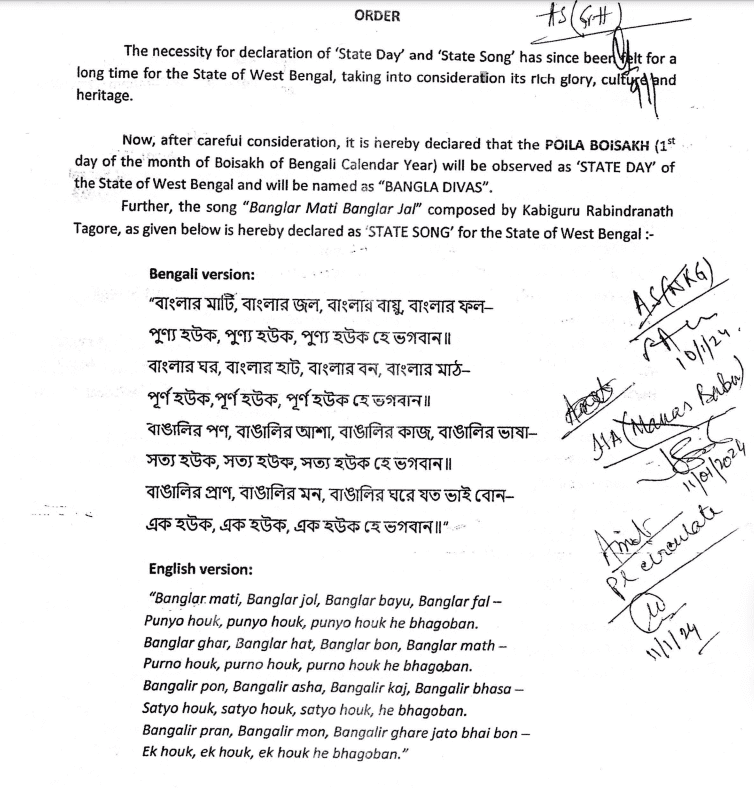 ORDER
AS (Gr-H)
The necessity for declaration of ‘State Day’ and ‘State Song’ has since been felt for a
long time for the State of West Bengal, taking into consideration its rich glory, culture and
heritage.
Now, after careful consideration, it is hereby declared that the POILA BOISAKH (1st
day of the month of Boisakh of Bengali Calendar Year) will be observed as ‘STATE DAY’ of
the State of West Bengal and will be named as “BANGLA DIVAS”.
Further, the song “Banglar Mati Banglar Jal” composed by Kabiguru Rabindranath
Tagore, as given below is hereby declared as ‘STATE SONG’ for the State of West Bengal :-
Bengali version:
“বাংলার মাটি, বাংলার জল, বাংলার বায়ু, বাংলার ফল–
পুণ্য হউক, পুণ্য হউক, পুণ্য হউক হে ভগবান॥
বাংলার ঘর, বাংলার হাট, বাংলার বন, বাংলার মাঠ–
পূর্ণ হউক,পূর্ণ হউক, পূর্ণ হউক হে ভগবান॥
বাঙালির পণ, বাঙালির আশা, বাঙালির কাজ, বাঙালির ভাষা–
সত্য হউক, সত্য হউক, সত্য হউক হে ভগবান॥
বাঙালির প্রাণ, বাঙালির মন, বাঙালির ঘরে যত ভাই বোন–
এক হউক, এক হউক, এক হউক হে ভগবান॥”
AS (NKG)
10/1/24
HA (Manas Babu)
11/01/2024
Pl circulate
11/1/24
English version:
“Banglar mati, Banglar jol, Banglar bayu, Banglar fal –
Punyo houk, punyo houk, punyo houk he bhagoban.
Banglar ghar, Banglar hat, Banglar bon, Banglar math –
Purno houk, purno houk, purno houk he bhagoban.
Bangalir pon, Bangalir asha, Bangalir kaj, Bangalir bhasa –
Satyo houk, satyo houk, satyo houk, he bhagoban.
Bangalir pran, Bangalir mon, Bangalir ghare jato bhai bon –
Ek houk, ek houk, ek houk he bhagoban.”